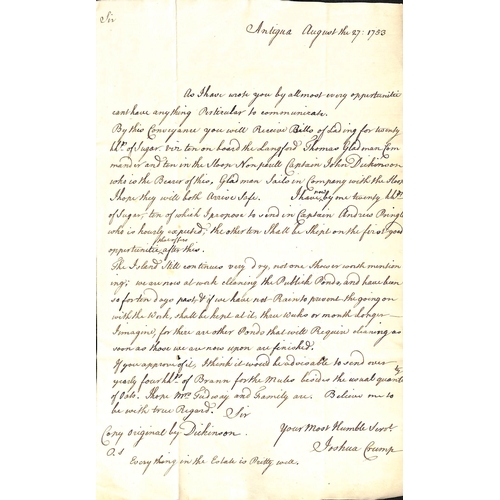 Sir
Antigua August the 27: 1753
As I have wrote you by allmost every opportunitie
cant have any thing Perticular to communicate.
By this Conveyance you will Receive Bills of Lading for twenty
hhds. of Sugar. viz ten on board the Langford Thomas Gladman Com
mander and ten in the Sloop Nonpareill Captain John Dickinson
who is the Bearer of this, Gladman Sails in Company with the Sloop
I hope they will both Arrive Safe. I have now by me twenty hhds.
of Sugar, ten of which I propose to send in Captain Andrew Pringle
who is hourly expected; the other ten Shall be Shipt on the first good
opportunitie after this.
The Island Still continues very dry, not one Shower worth mention
ing; we are now at work cleaning the Publick Ponds, and have been
so for ten days past, & if we have not Rain to prevent the going on
with the Work, shall be kept at it three weeks or month longer
I imagine, for there are other Ponds that will Require cleaning as
soon as those we are now upon are finished.
If you approve of it, I think it would be advisable to send over
yearly four hhds. of Brann for the Mules besides the usual quantity
of Oats. I hope Mrs. Tudway and Family are. Believe me to
be with true Regard. Sir
Copy original by Dickinson. Your Most Humble Servt
Joshua Crump
P.S
Every thing in the Estate is Pretty well.